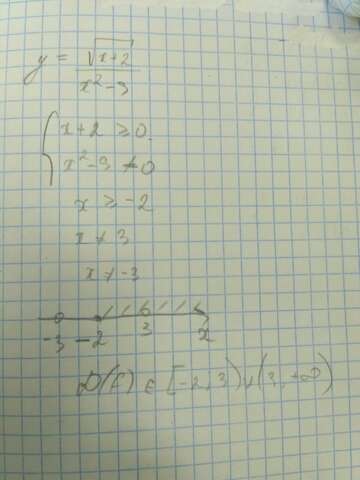 y = √(x+2) / (x² - 9)
{ x + 2 ≥ 0
x² - 9 ≠ 0
x ≥ -2
x ≠ 3
x ≠ -3
-3 -2 3 x
D(f) ∈ [-2, 3) ∪ (3, +∞)